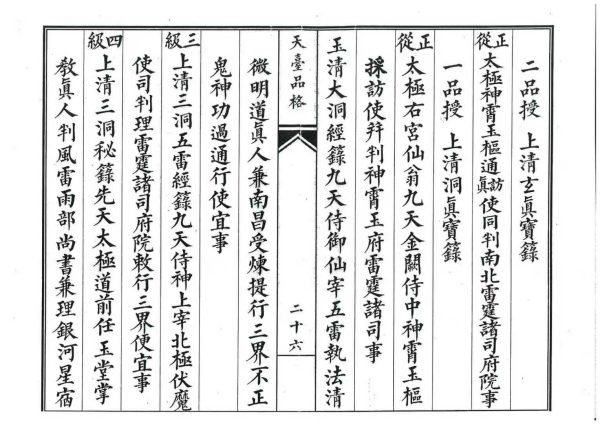 二品授 上清玄眞寶籙
正從 太極神霄玉樞通訪眞使同判南北雷霆諸司府院事
一品授 上清洞眞寶籙
正從 太極右宮仙翁九天金闕侍中神霄玉樞
採訪使幷判神霄玉府雷霆諸司事
玉清大洞經籙九天侍御仙宰五雷執法清
天臺品格
二十六
微明道眞人兼南昌受煉提行三界不正
鬼神功過通行使宜事
三級 上清三洞五雷經籙九天侍神上宰北極伏魔
使司判理雷霆諸司府院敕行三界便宜事
四級 上清三洞秘籙先天太極道前任玉堂掌
敎眞人判風雷雨部尚書兼理銀河星宿